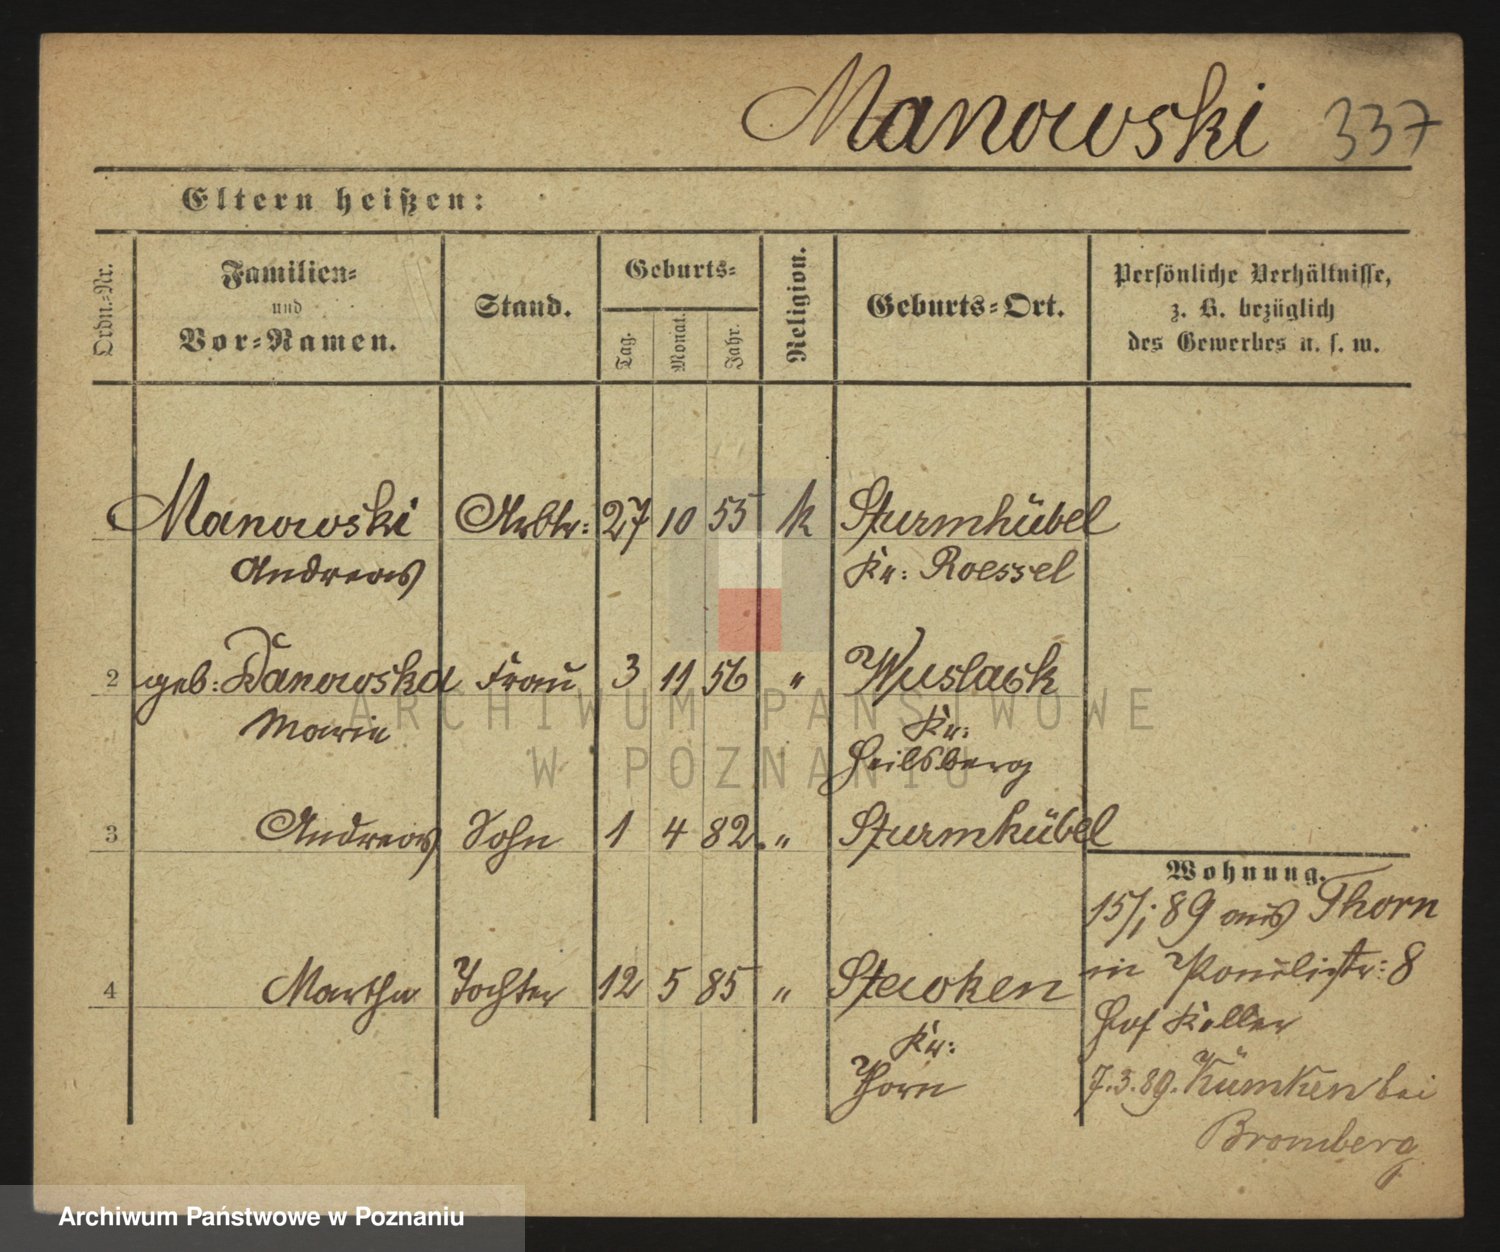 Manowski 337
Eltern heißen:
Ordn.=Nr.
Familien=
und
Vor=Namen.
Stand.
Geburts=
Tag.
Monat.
Jahr.
Religion.
Geburts=Ort.
Persönliche Verhältnisse,
z. B. bezüglich
des Gewerbes u. s. w.
Manowski Arbtr: 27 10 55 k Sturmhübel
Andreas Kr: Roessel
2 geb: Danowska Frau 3 11 56 " Wuslack
Marie Kr:
Heilsberg
3 Andreas Sohn 1 4 82. " Sturmhübel
4 Martha Tochter 12 5 85 " Stewken
Kr:
Thorn
Wohnung.
15/1 89 aus Thorn
in 8
Hof Keller
7.3.89. bei
Bromberg
ARCHIWUM PAŃSTWOWE
W POZNANIU
Archiwum Państwowe w Poznaniu